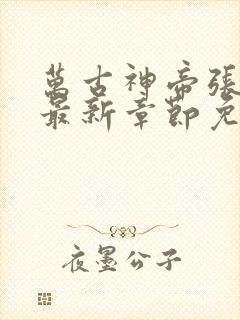 萬古神帝張
最新章節免
夜墨公子